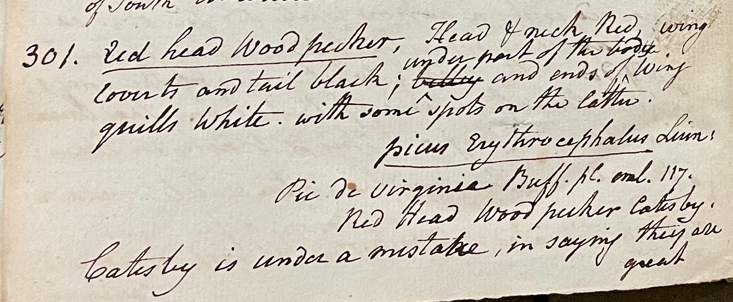 of South
301. Red head Woodpecker, Head & neck Red, wing
coverts and tail black; under part of the body and ends of Wing
quills White. with some spots on the latter.
picus Erythrocephalus Linn:
Pic de Virginia Buff. pl. enl. 117.
Red Head Woodpecker Catesby.
Catesby is under a mistake, in saying they are
great